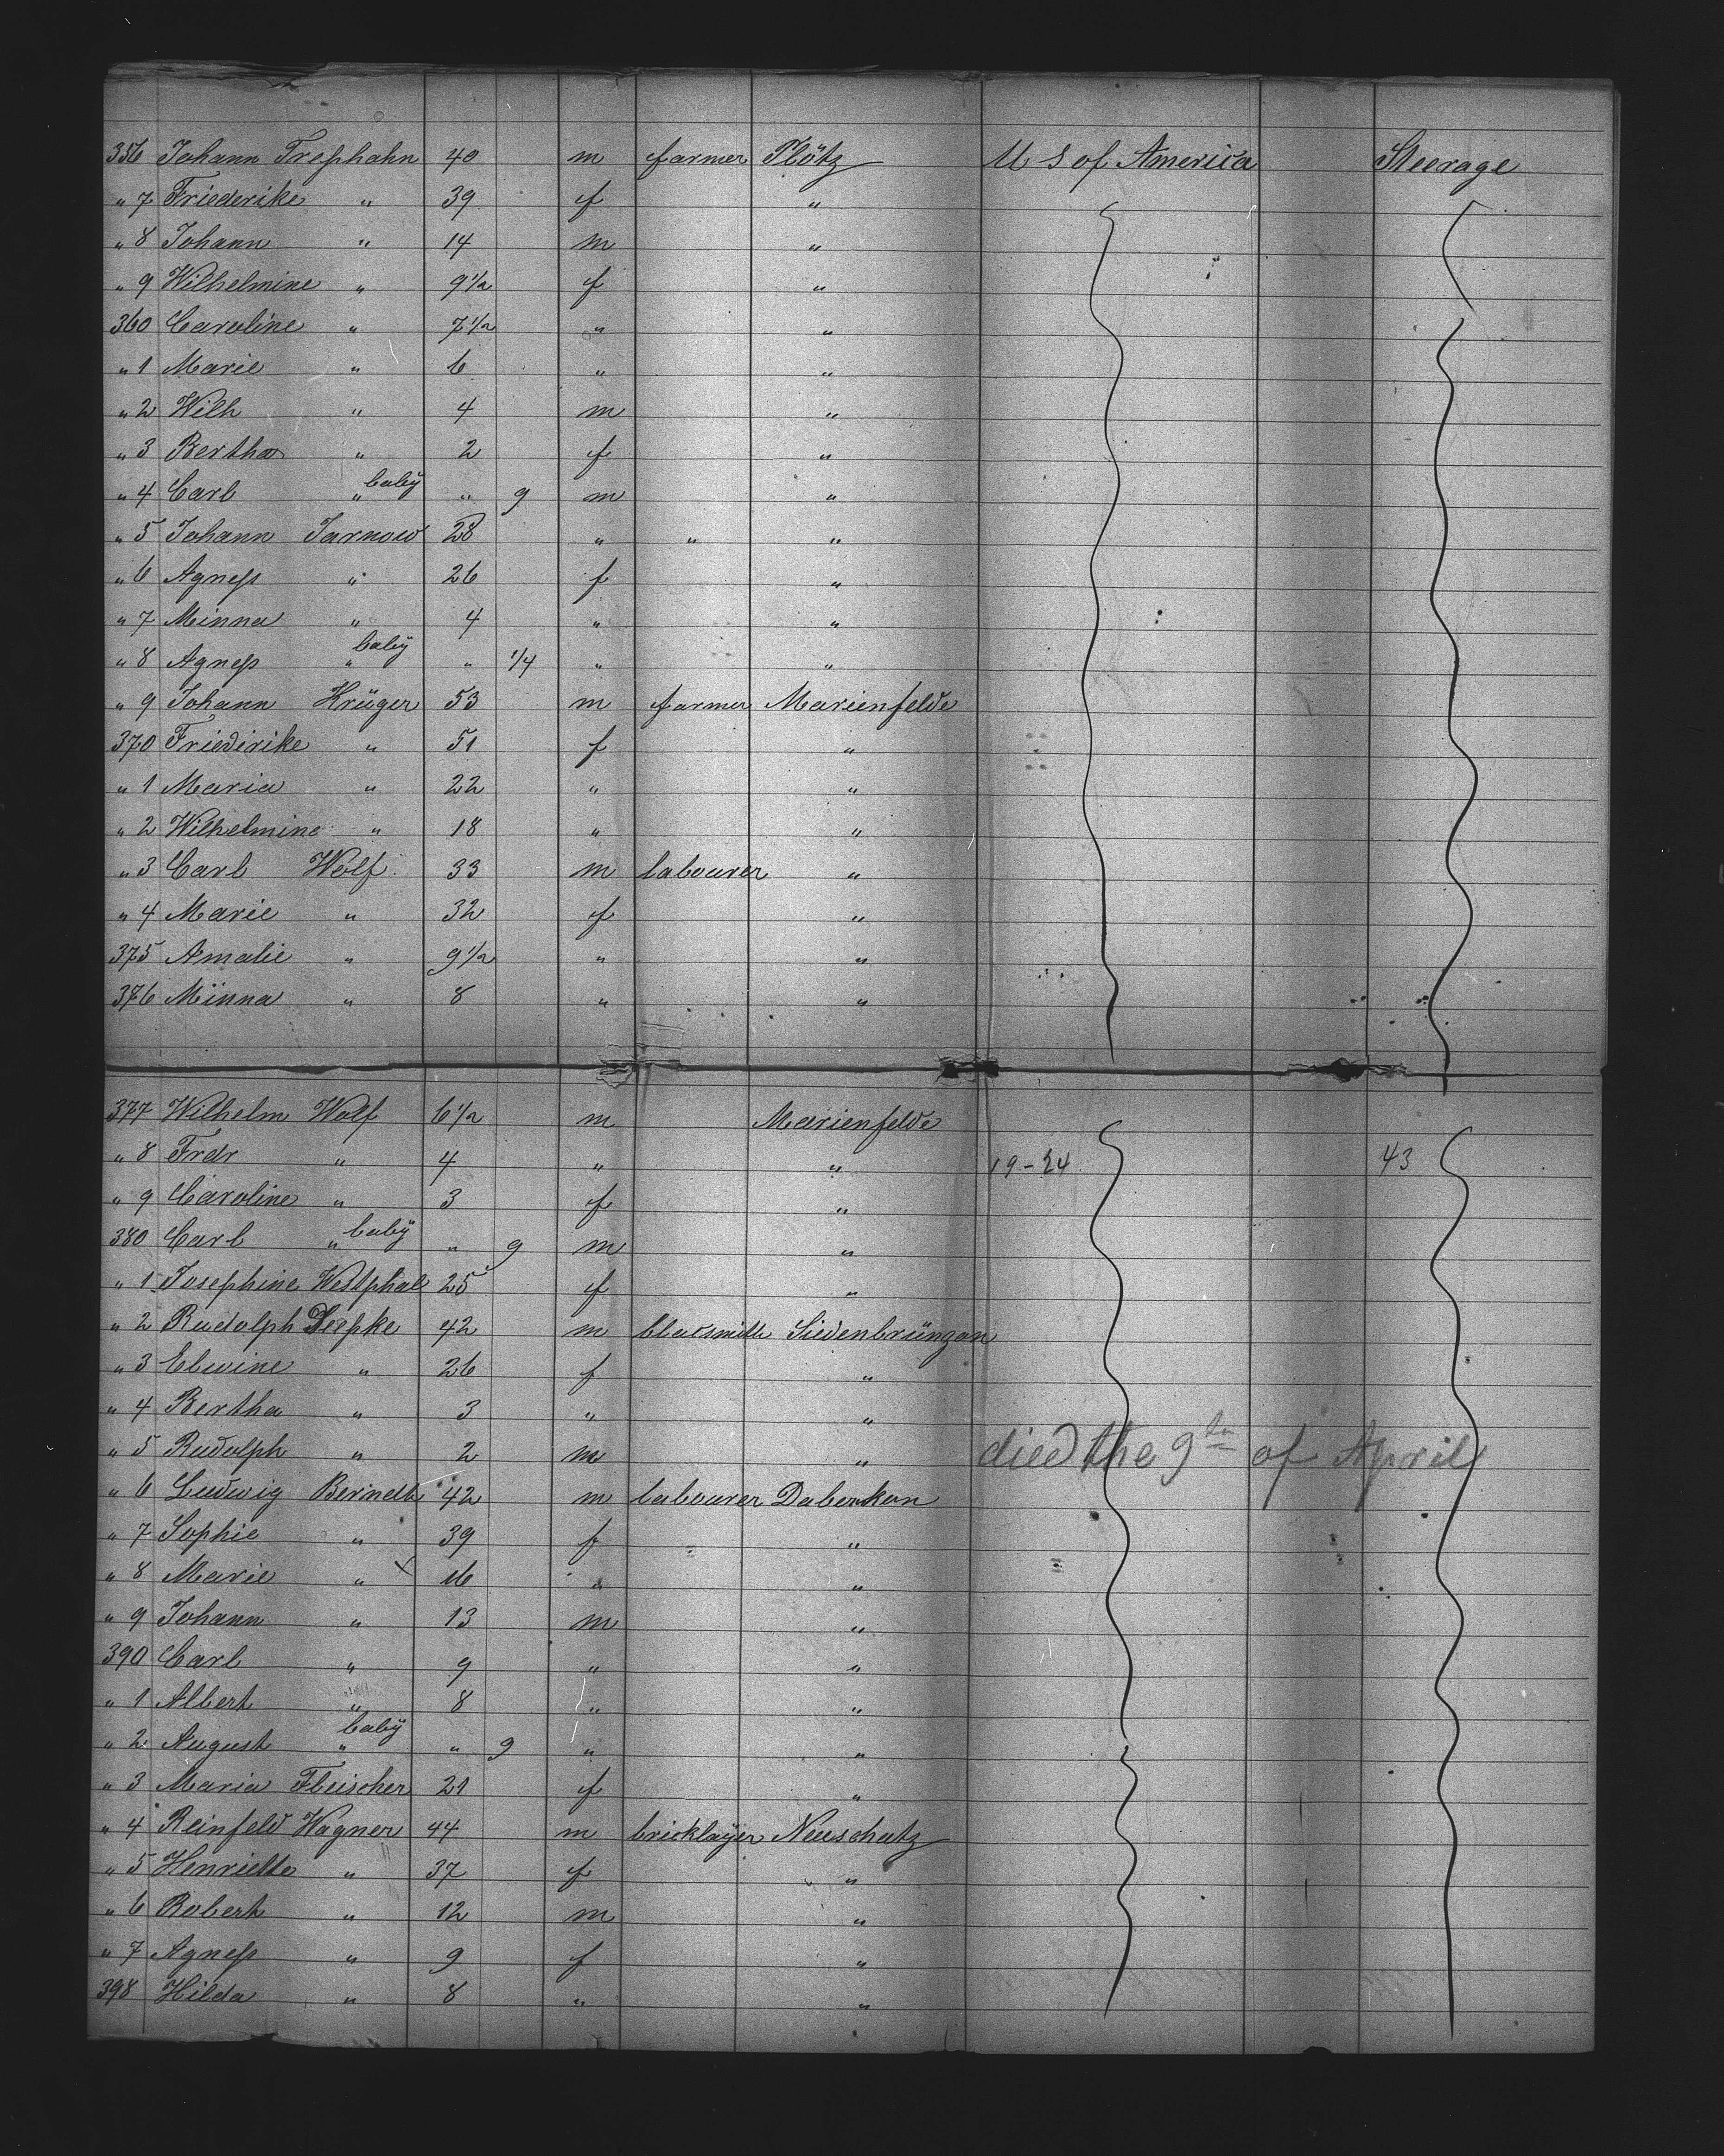 356 Johann Trephahn 40 m farmer Plötz U S of America Steerage
" 7 Friederike " 39 f "
" 8 Johann " 14 m "
" 9 Wilhelmine " 9 1/2 f "
360 Caroline " 7 1/2 " "
" 1 Marie " 6 " "
" 2 Wilh " 4 m "
" 3 Bertha " 2 f "
" 4 Carl " baby " 9 m "
" 5 Johann Tarnow 28 " " "
" 6 Agneſs " 26 f "
" 7 Minna " 4 " "
" 8 Agneſs " baby " 1/4 " "
" 9 Johann Krüger 53 m farmer Marienfelde
370 Friedirike " 51 f "
" 1 Maria " 22 " "
" 2 Wilhelmine " 18 " "
" 3 Carl Wolf 33 m labourer "
" 4 Marie " 32 f "
375 Amalie " 9 1/2 " "
376 Minna " 8 " "
377 Wilhelm Wolf 6 1/2 m Marienfelde
" 8 Frdr " 4 " " 19-24 43
" 9 Caroline " 3 f "
380 Carl " baby " 9 m "
" 1 Josephine Westphal 25 f "
" 2 Rudolph 42 m blacsmith Siedenbrünzon
" 3 Elwine " 26 f "
" 4 Bertha " 3 " "
" 5 Rudolph " 2 m " died the 9th of April
" 6 Ludwig Berndt 42 m labourer Daberkon
" 7 Sophie " 39 f "
" 8 Marie " 16 " "
" 9 Johann " 13 m "
390 Carl " 9 " "
" 1 Albert " 8 " "
" 2 August " baby " 9 " "
" 3 Maria Fleischer 21 f "
" 4 Reinfeld Wagner 44 m bricklayer Neuschatz
" 5 Henriette " 37 f "
" 6 Robert " 12 m "
" 7 Agneſs " 9 f "
398 Hilda " 8 " "